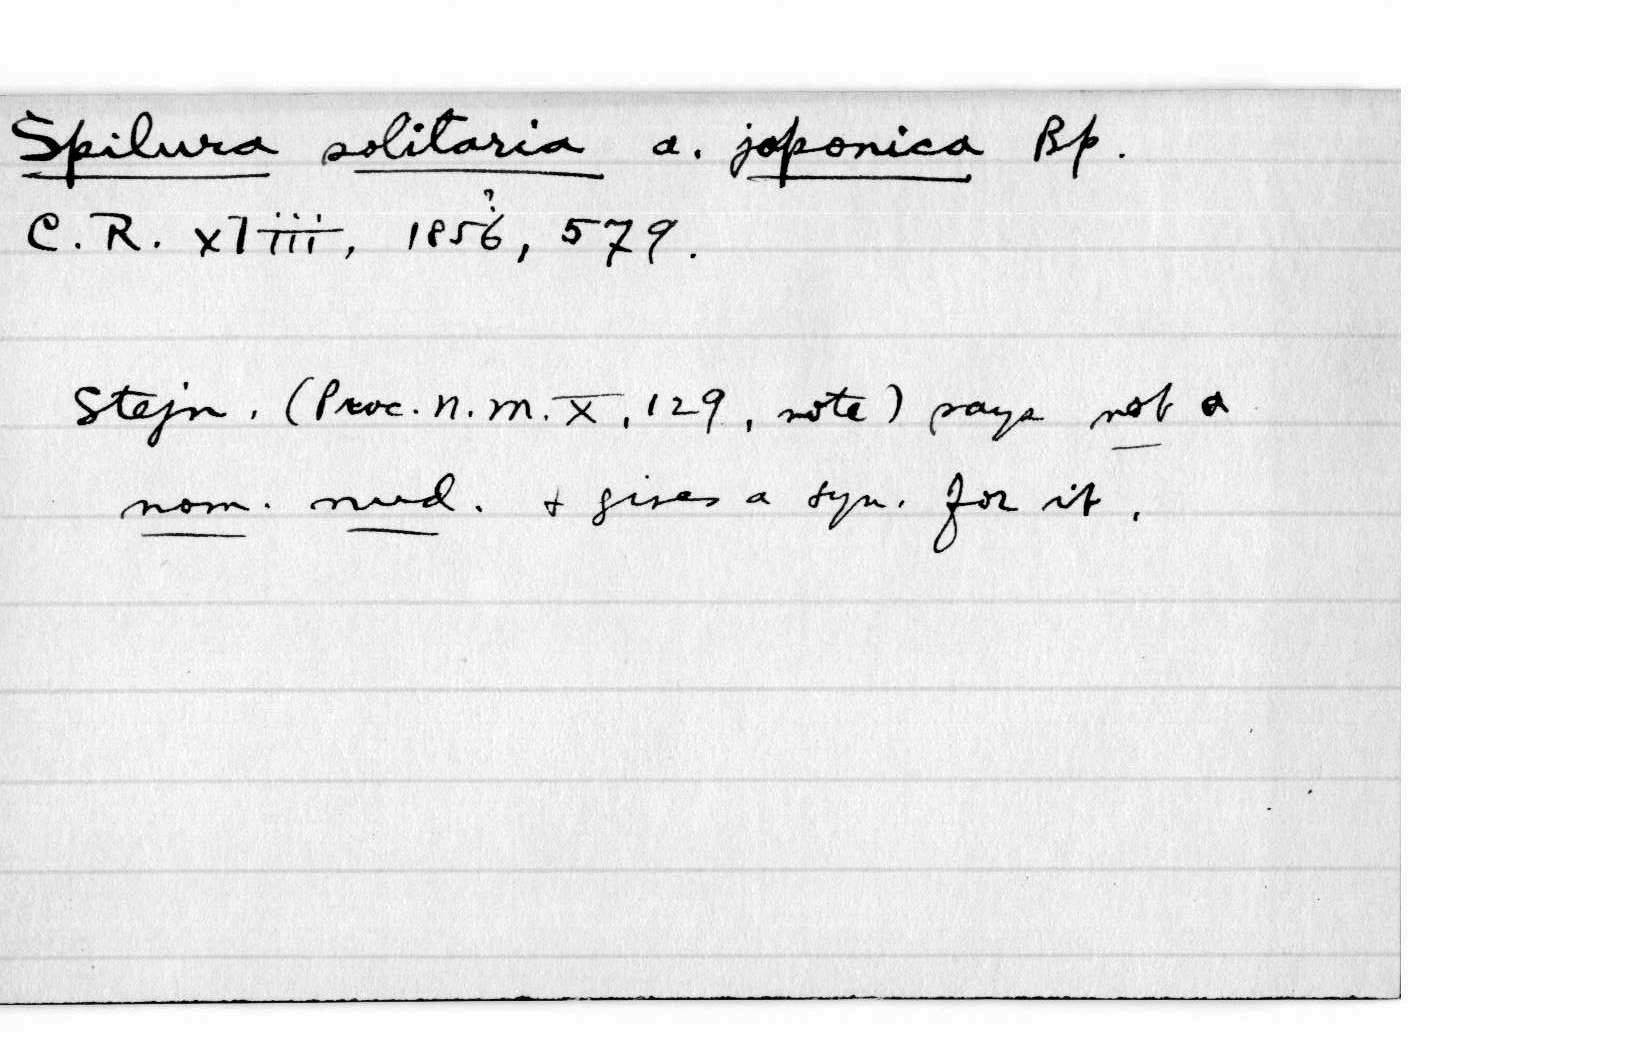 Spilura solitaria a. japonica Bp.
C. R. xliii, 1856?, 579.
Stejn. (Proc. N. M. X, 129, note) says not a
nom. nud. & gives a syn. for it.